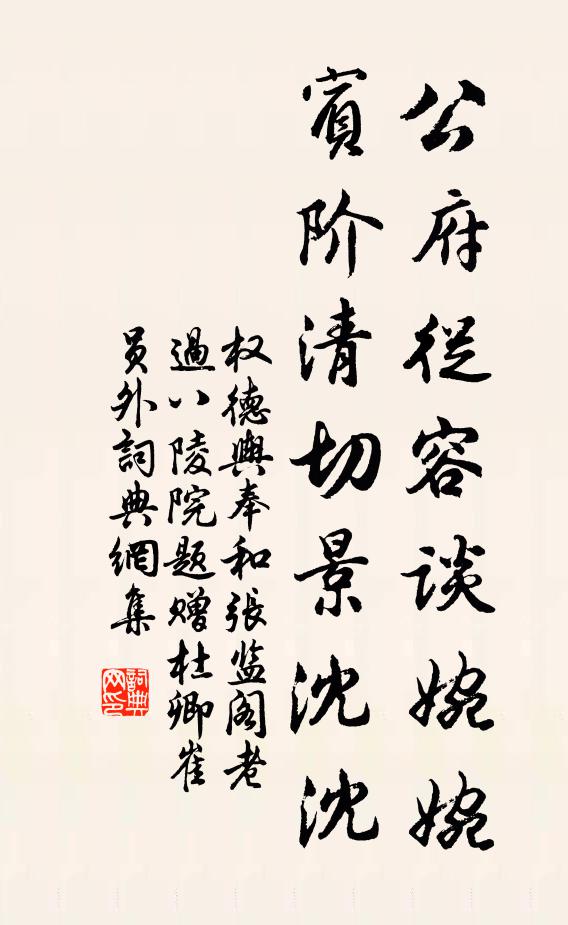 公府從容談婉婉
賓阶清切景沈沈
权德輿奉和張监阁老
過八陵院题赠杜卿崔
員外詞典網集
詞典
网印